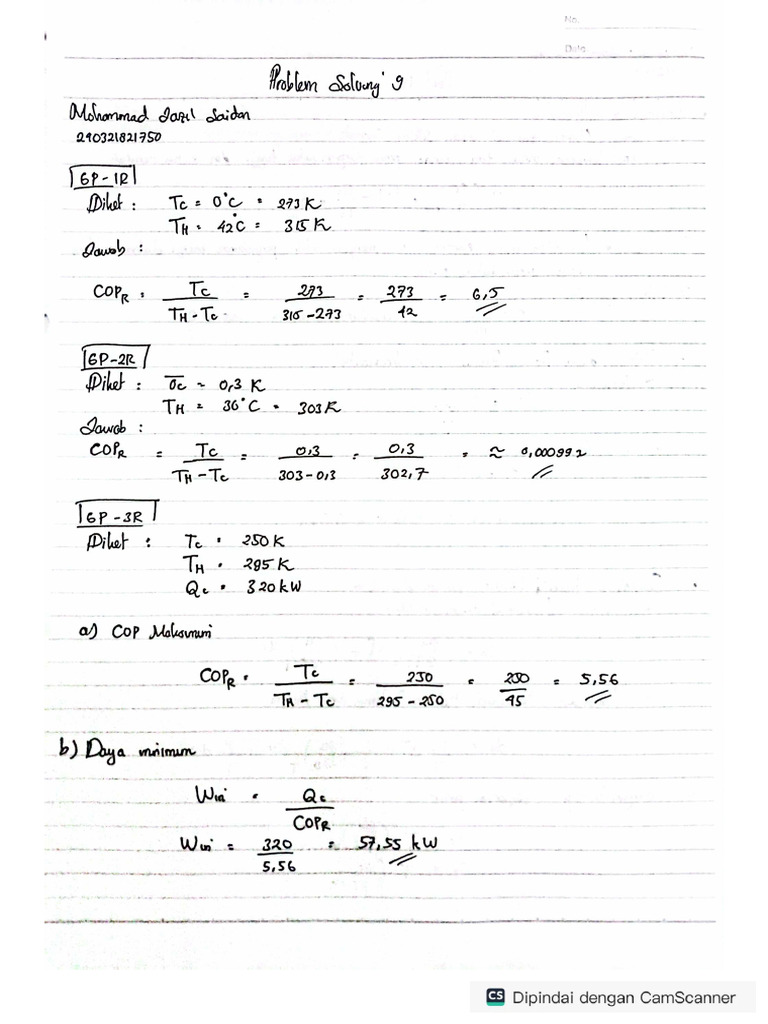 No.
Date
Problem Solving 9
Mohammad Saidan
290321821750
GP-1R
Diket : Tc = 0°C = 273 K
TH = 42°C = 315 K
Jawab :
COPR = Tc / TH - Tc = 273 / 315 - 273 = 273 / 42 = 6,5
GP-2R
Diket : Tc = 0,3 K
TH = 30°C = 303 K
Jawab :
COPR = Tc / TH - Tc = 0,3 / 303 - 0,3 = 0,3 / 302,7 = ≈ 0,000992
GP-3R
Diket : Tc = 250 K
TH = 295 K
Qc = 320 kW
a) COP Maksimum
COPR = Tc / TH - Tc = 250 / 295 - 250 = 250 / 45 = 5,56
b) Daya minimum
Win = Qc / COPR
Win = 320 / 5,56 = 57,55 kW
CS Dipindai dengan CamScanner